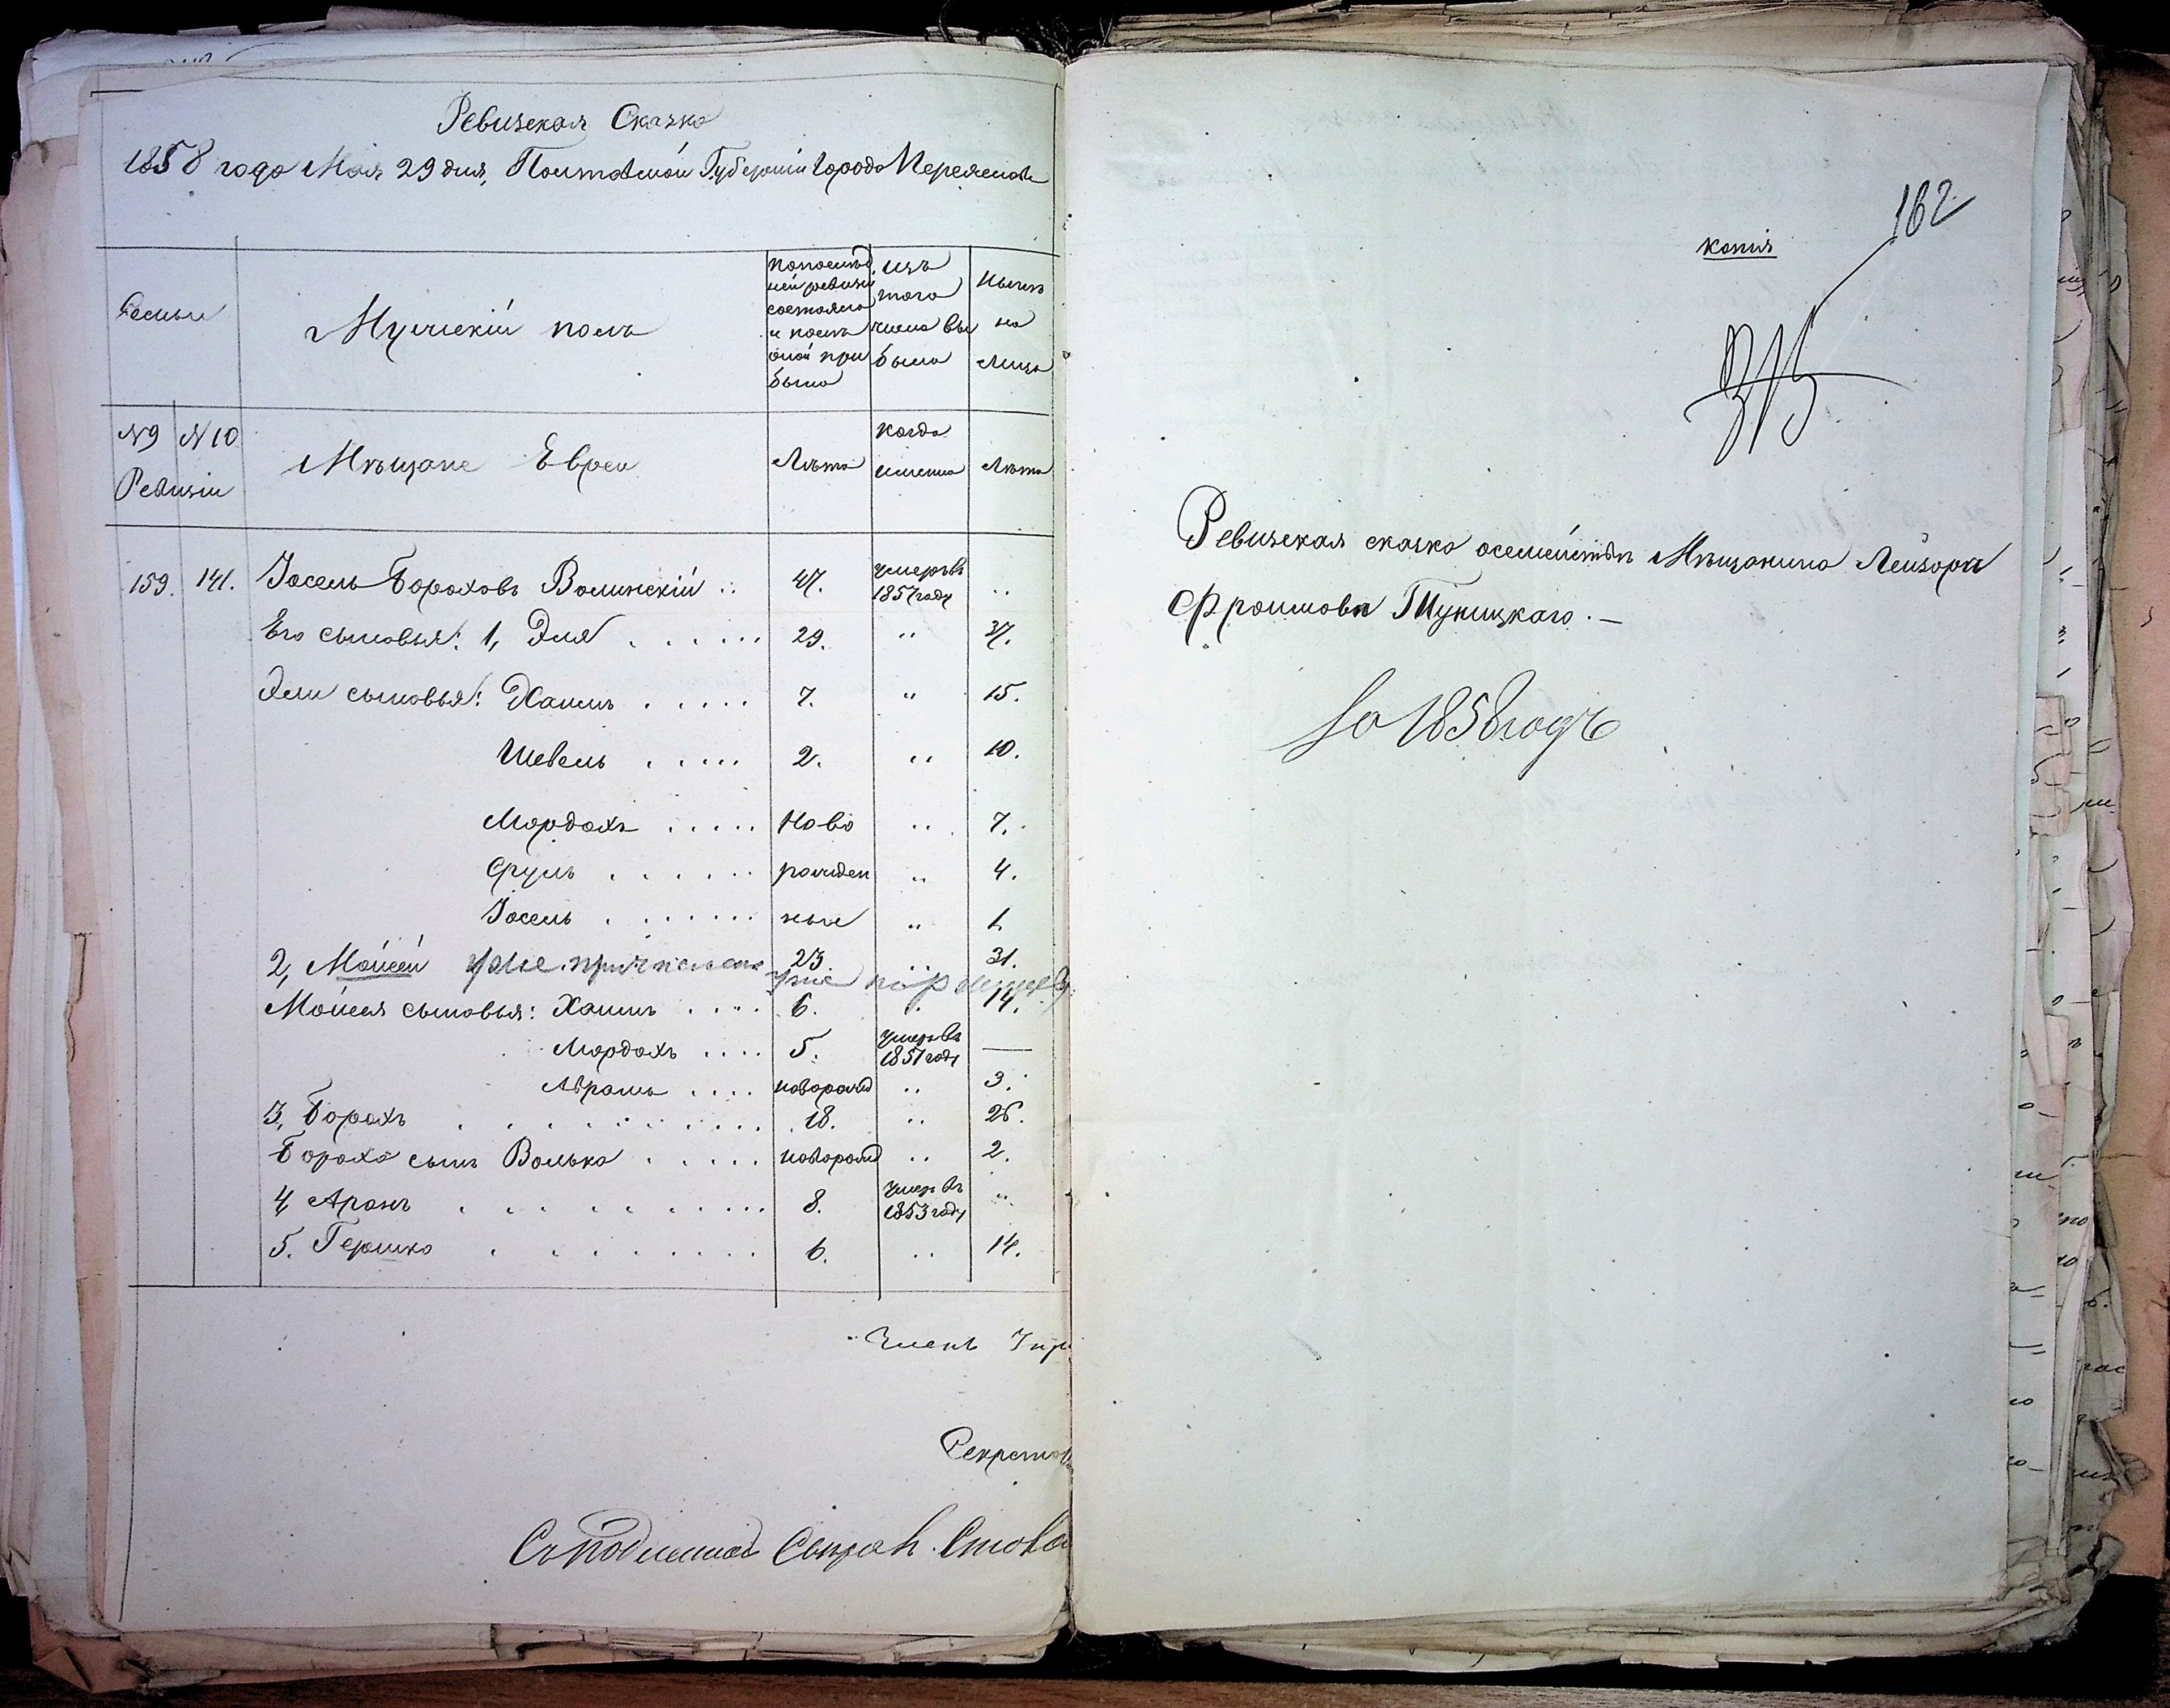 Ревизская Сказка
1858 года Мая 29 дня, Полтавской Губернии Города Переяслава
Семьи
Мужескій полъ
по послѣд
ней ревизіи
состояло
и послѣ
оной при
было
изъ
того
числа вы
было
Нынѣ
на
лицо
N9 N10
Ревизіи
Мѣщане Евреи
Лѣта
когда
именно
Лѣта
159. 141. Іосель Бороховъ Волинскій .. 47. умеръ въ 1857 году ..
Его сыновья: 1, Эля . . . . . . 29. " 37.
Эли сыновья: Хаимъ . . . . . 7. " 15.
Шевель . . . . . 2. " 10.
Мордохъ . . . . . Ново .. 7.
Сруль . . . . . . рожден .. 4.
Іосель . . . . . . ные .. 1.
2, Мойсей уже причисленъ 23. .. 31.
уже
Мойсея сыновья: Хаимъ . . . . 6. 14.
Мордохъ . . . . 5. умеръ въ 1851 году —
Абрамъ . . . . новорожд .. 3.
3, Борохъ . . . . . . . . . . 18. .. 26.
Бороха сынъ Волько . . . . . новорожд .. 2.
4, Аронъ . . . . . . . . . . 8. умеръ въ 1853 году ..
5. Гершко . . . . . . . . 6. .. 14.
Членъ Упр
Секретар
Съ подлинной
162
копія
Ревизская сказка о семействѣ Мѣщанина Лейзора
Фроимова Туницкаго. —
За 1858 годъ